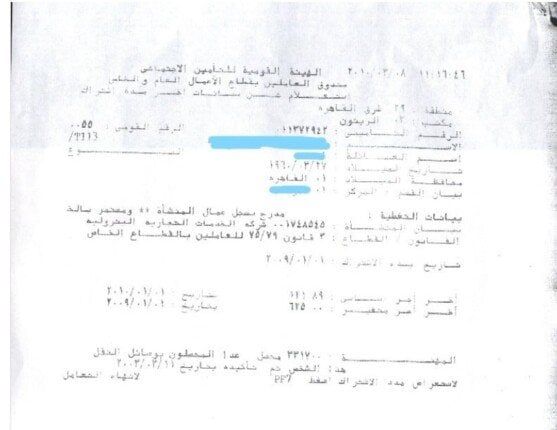 ١١:١٦:٤٦ ٢٠١٠/٠٣/٠٨ الهيئة القومية للتأمين الاجتماعى
صندوق العاملين بقطاع الاعمال العام والخاص
استعلام عن بيانات اخر مدة اشتراك
منطقة : ٢٩ شرق القاهره
مكتب : ٠٢ الزيتون
الرقم التأمينى : ٠١١٣٧٢٩٤٢ الرقم القومى : ٠٠٥٥
الاسم
اسم العائلة
تاريخ الميلاد : ١٩٦٠/٠٣/٢٧ النوع
محافظة الميلاد : ٠١ القاهره
بيان القسم / المركز : ٠١
بيانات التغطية : مدرج بسجل عمال المنشأة ** ومستمر بالخ
بيان المنشأة : ٠٠١٧٤٨٥٤٥ شركه الخدمات التجاريه البتروليه
القانون / القطاع : ٣ قانون ٧٥/٧٩ للعاملين بالقطاع الخاص
تاريخ بدء الاشتراك : ٢٠٠٩/٠١/٠١
أخر أجر أساسى : ٨٩ بتاريخ : ٢٠١٠/٠١/٠١
أخر أجر متغير : ٦٢٥٠٠ بتاريخ : ٢٠٠٩/٠١/٠١
المهنة : ٣٣١٧٠٠ محصل عدا المحصلون بوسائل النقل
هذا الشخص تم تأكيده بتاريخ ٢٠٠٣/٠٣/١١
لاستعراض مدد الاشتراك اضغط PF7 لانهاء التعامل